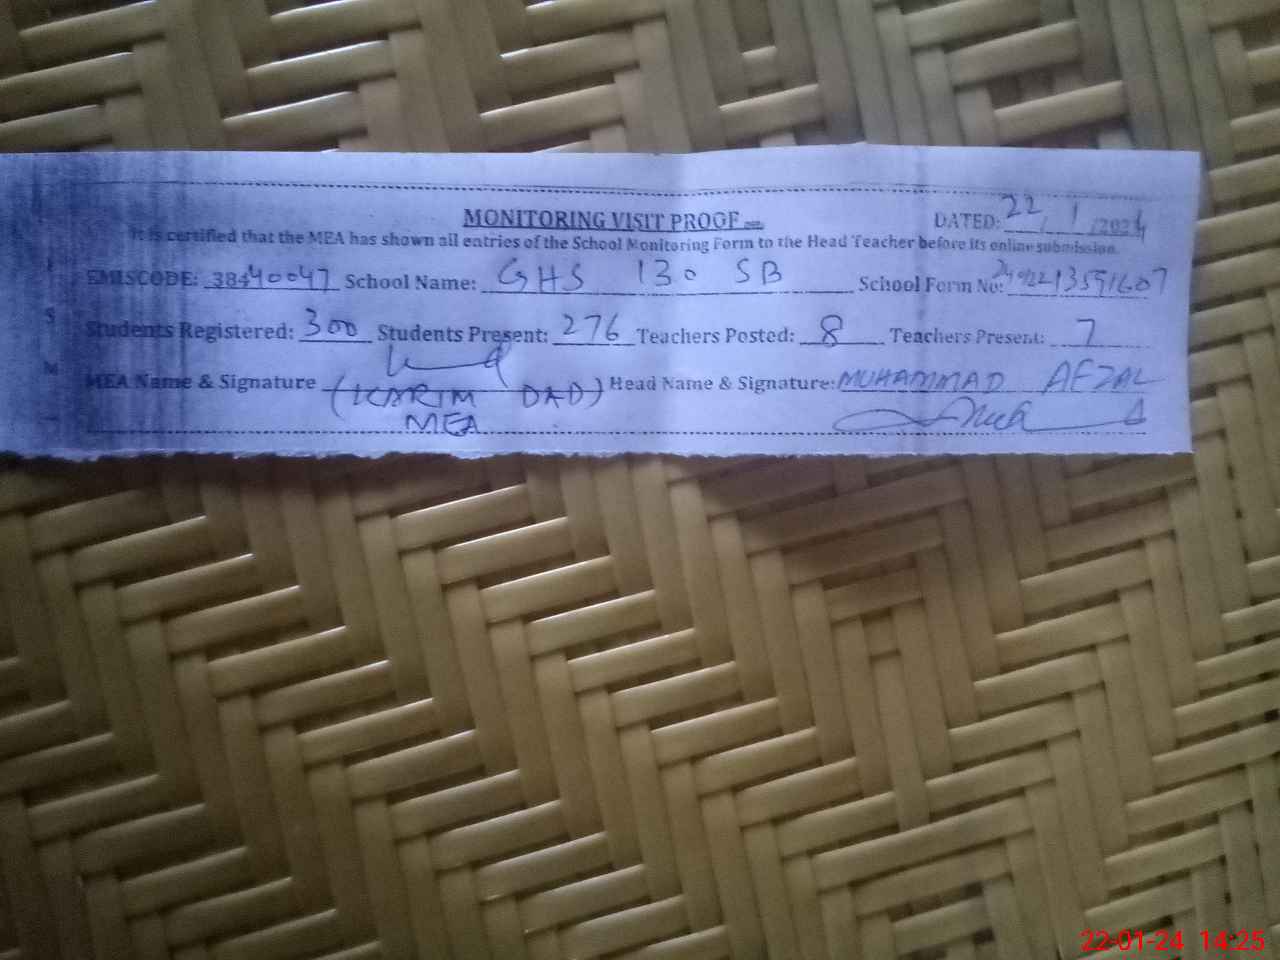 MONITORING VISIT PROOF
DATED: 22/1/2024
It is certified that the MEA has shown all entries of the School Monitoring Form to the Head Teacher before its online submission.
EMISCODE: 38440047 School Name: GHS 130 SB School Form No:
Students Registered: 300 Students Present: 276 Teachers Posted: 8 Teachers Present: 7
MEA Name & Signature (KARIM DAD) Head Name & Signature: MUHAMMAD AFZAL
MEA
22-01-24 14:25